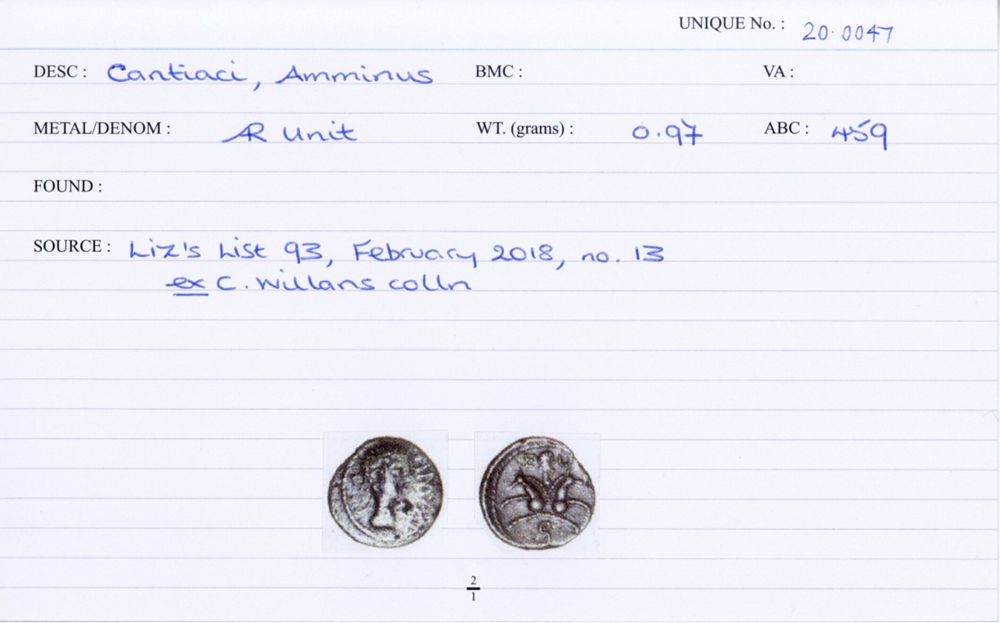 UNIQUE No. : 20.0047
DESC : Cantiaci, Amminus BMC : VA :
METAL/DENOM : AR unit WT. (grams) : 0.97 ABC : 459
FOUND :
SOURCE : Liz's List 93, February 2018, no. 13
ex C. Willans colln
2
1